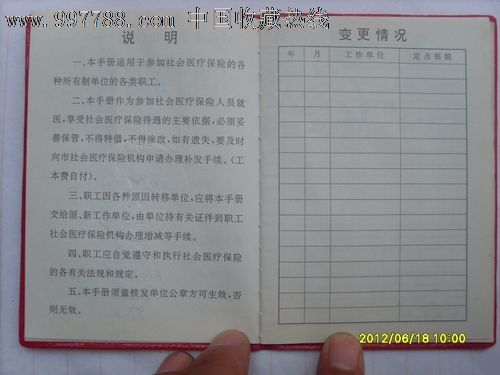 www.997788.com 中国收藏热线
说 明
一、本手册适用于参加社会医疗保险的各
种所有制单位的各类职工。
二、本手册作为参加社会医疗保险人员就
医,享受社会医疗保险待遇的主要依据,必须妥
善保管,不得转借,不得涂改,如有遗失,要及时
向市社会医疗保险机构申请办理补发手续。(工
本费自付)。
三、职工因各种原因转移单位,应将本手册
交给原、新工作单位,由单位持有关证件到职工
社会医疗保险机构办理增减等手续。
四、职工应自觉遵守和执行社会医疗保险
的各有关法规和规定。
五、本手册须盖核发单位公章方可生效,否
则无效。
变更情况
年 月 工作单位 定点医院
2012/06/18 10:00